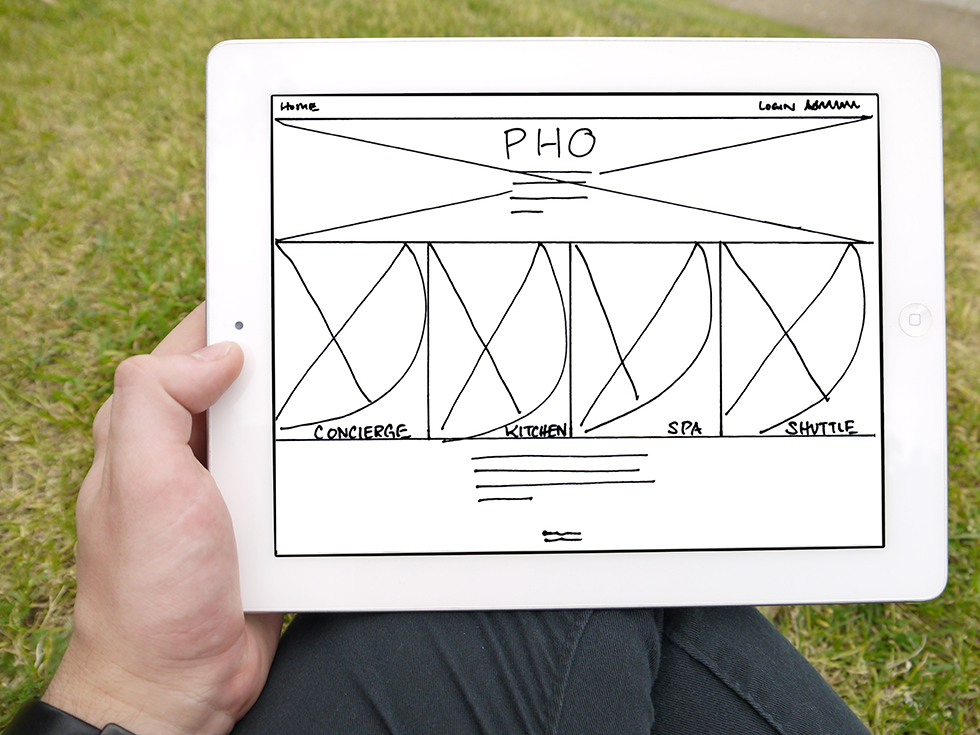 HOME
LOGIN
PHO
CONCIERGE
KITCHEN
SPA
SHUTTLE